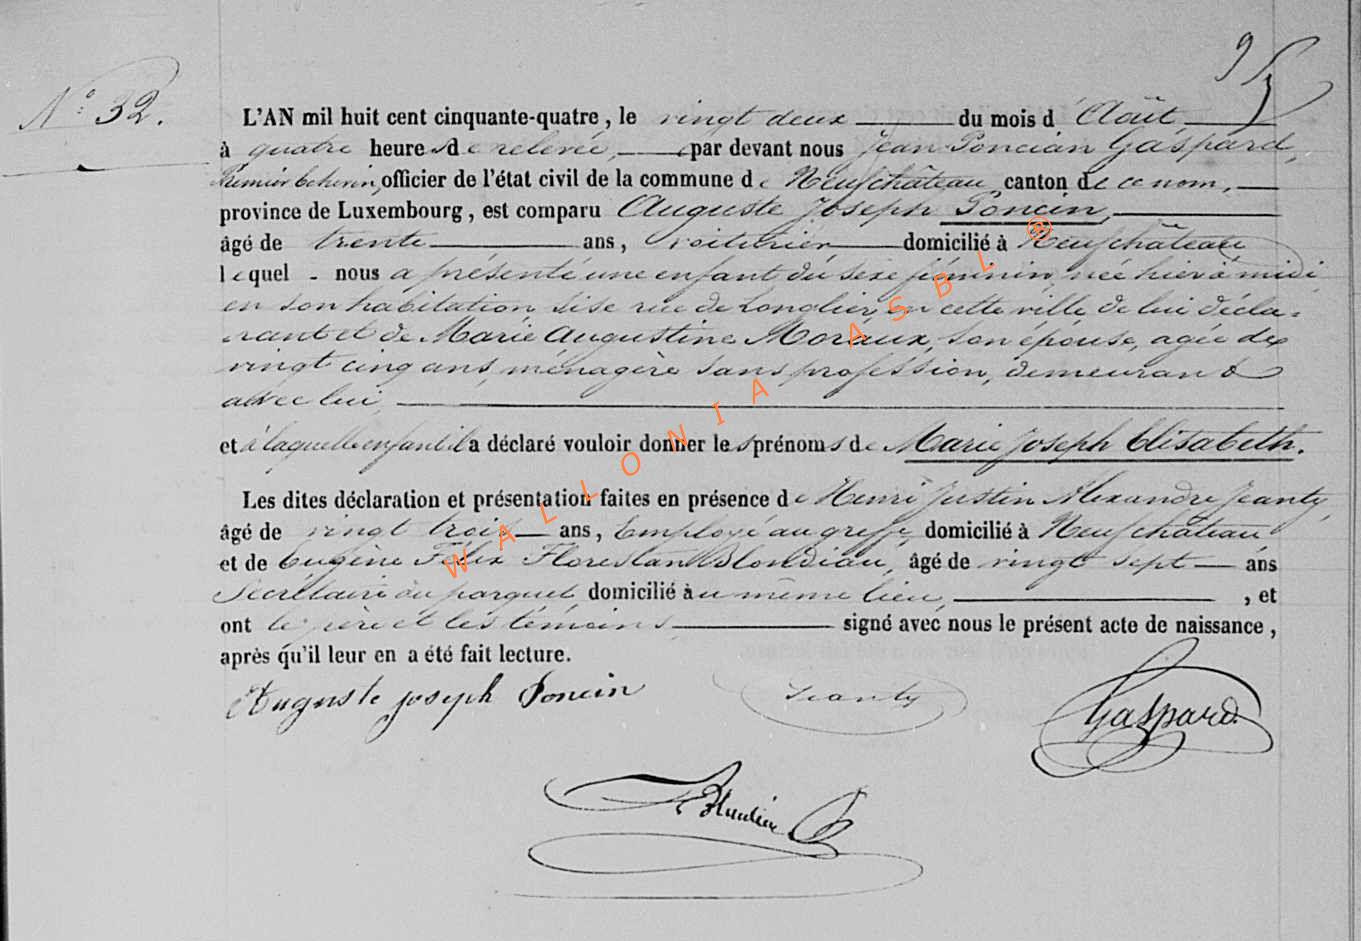 N° 32.
L'AN mil huit cent cinquante-quatre, le vingt deux du mois d'Août
à quatre heures de relevée, par devant nous Jean Poncian Gaspard,
Premier Echevin, officier de l'état civil de la commune de Neufchâteau, canton de ce nom,
province de Luxembourg, est comparu Auguste Joseph Poncin,
âgé de trente ans, voiturier domicilié à Neufchâteau
lequel nous a présenté une enfant du sexe féminin, née hier à midi,
en son habitation sise rue de Longlier, en cette ville, de lui décla-
rant et de Marie Augustine Moraux, son épouse, agée de
vingt cinq ans, ménagère sans profession, demeurant
avec lui,
et à laquelle enfant il a déclaré vouloir donner les prénoms de Marie Joseph Elisabeth.
Les dites déclaration et présentation faites en présence de Henri Justin Alexandre Jeanty,
âgé de vingt trois ans, Employé au greffe, domicilié à Neufchâteau
et de Eugène Félix Florestan Blondiau, âgé de vingt sept ans
Secrétaire du parquet domicilié au même lieu, , et
ont le père et les témoins, signé avec nous le présent acte de naissance,
après qu'il leur en a été fait lecture.
Auguste joseph Poncin
Jeanty
Gaspard
Blondiau
WALLONIA ASBL ®